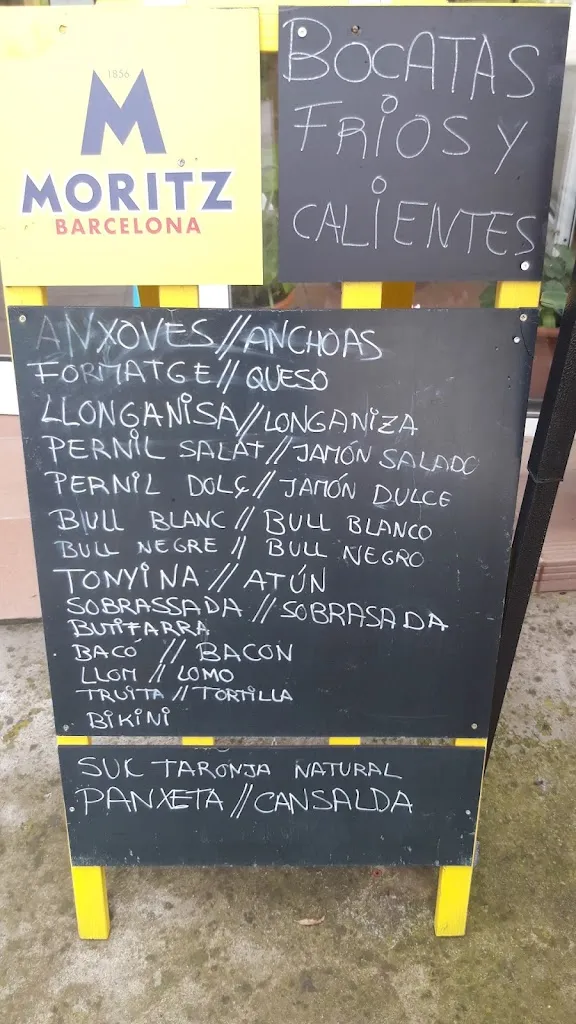 1856
M
MORITZ
BARCELONA
BOCATAS
FRIOS Y
CALIENTES
ANXOVES // ANCHOAS
FORMATGE // QUESO
LLONGANISA // LONGANIZA
PERNIL SALAT // JAMÓN SALADO
PERNIL DOLÇ // JAMÓN DULCE
BULL BLANC // BULL BLANCO
BULL NEGRE // BULL NEGRO
TONYINA // ATÚN
SOBRASSADA // SOBRASADA
BUTIFARRA
BACÓ // BACON
LLOM // LOMO
TRUITA // TORTILLA
BIKINI
SUK TARONJA NATURAL
PANXETA // CANSALDA